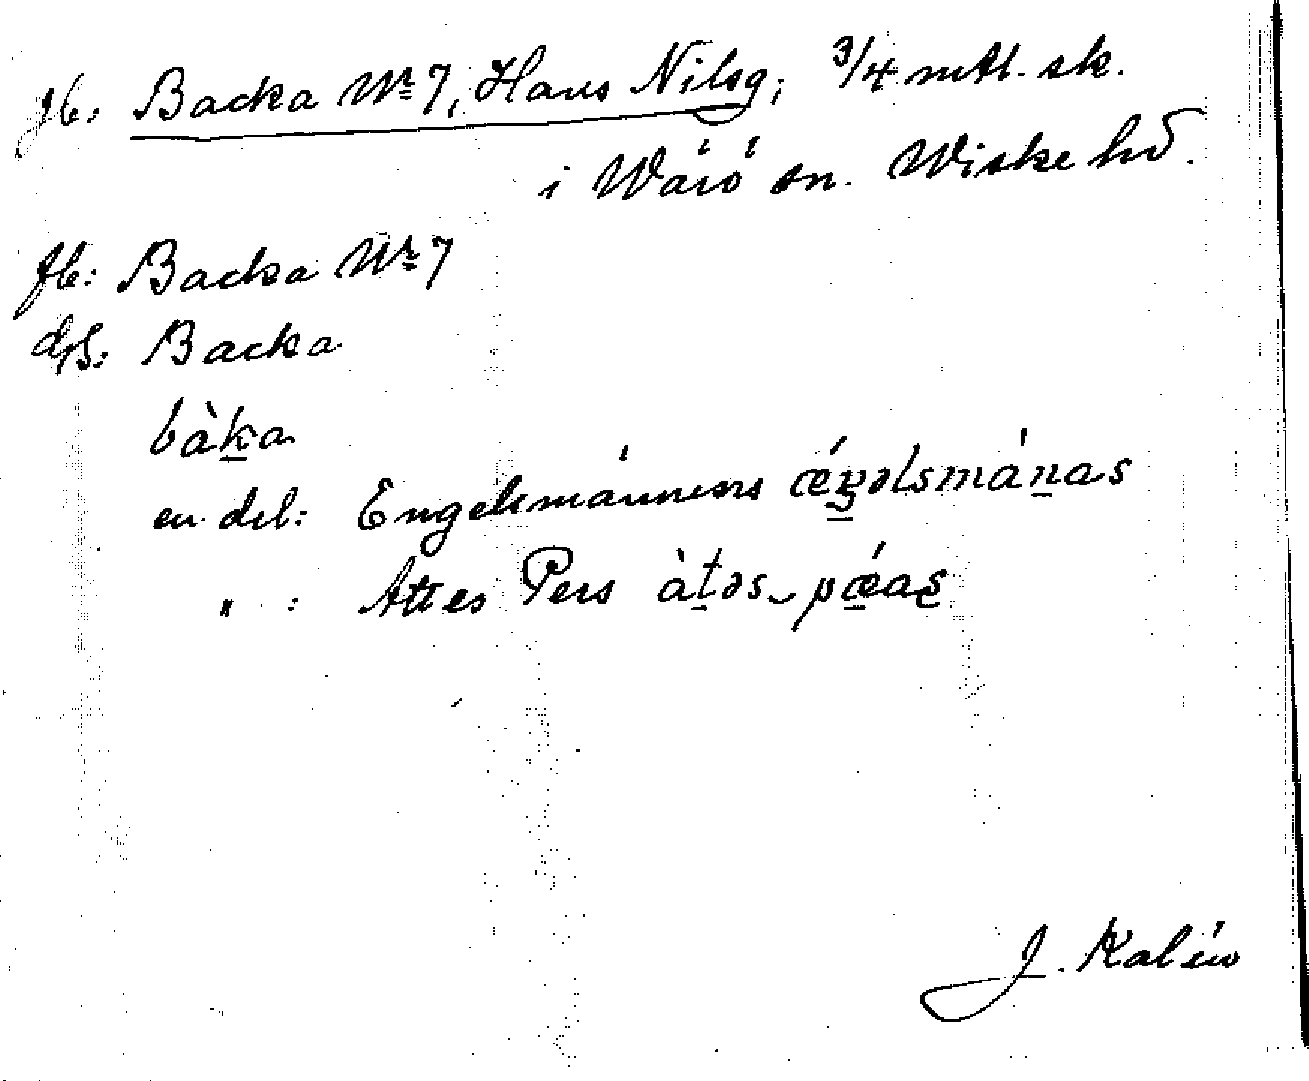 jb: Backa Nr 7, Hans Nilsg; 3/4 mtl. sk.
i Wärö sn. Wiske hd.
jb: Backa Nr 7
djb: Backa
bàk̲a
en del: Engelsmannens ǽŋ̲əlsmán̲as
" : Attes Pers àt̲əs‿pǽas̲
J. Kalén